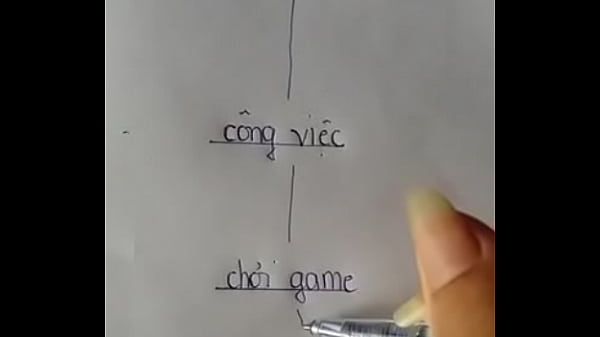 công việc
chơi game